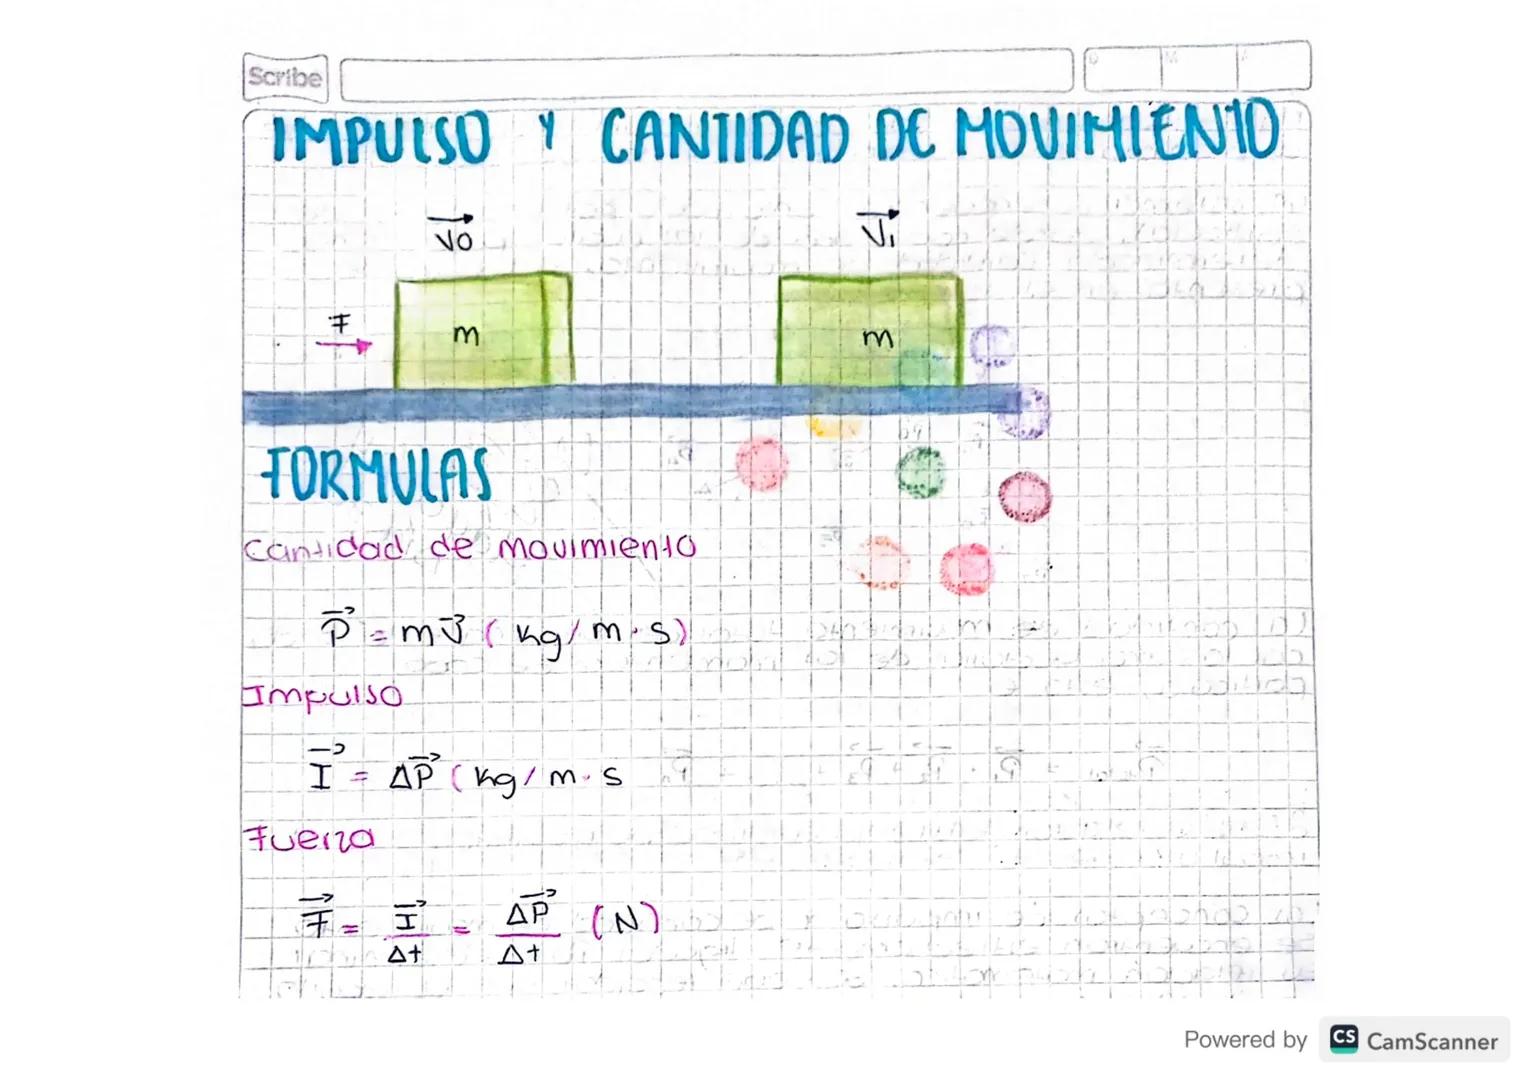 Scribe
IMPULSO Y CANTIDAD DE MOVIMIENTO
V0
V1
F
m
m
FORMULAS
Cantidad de movimiento
P = mV ( kg / m · s)
Impulso
I = ΔP ( kg / m · s
Fuerza
F = I/Δt = ΔP/Δt (N)
Powered by CS CamScanner